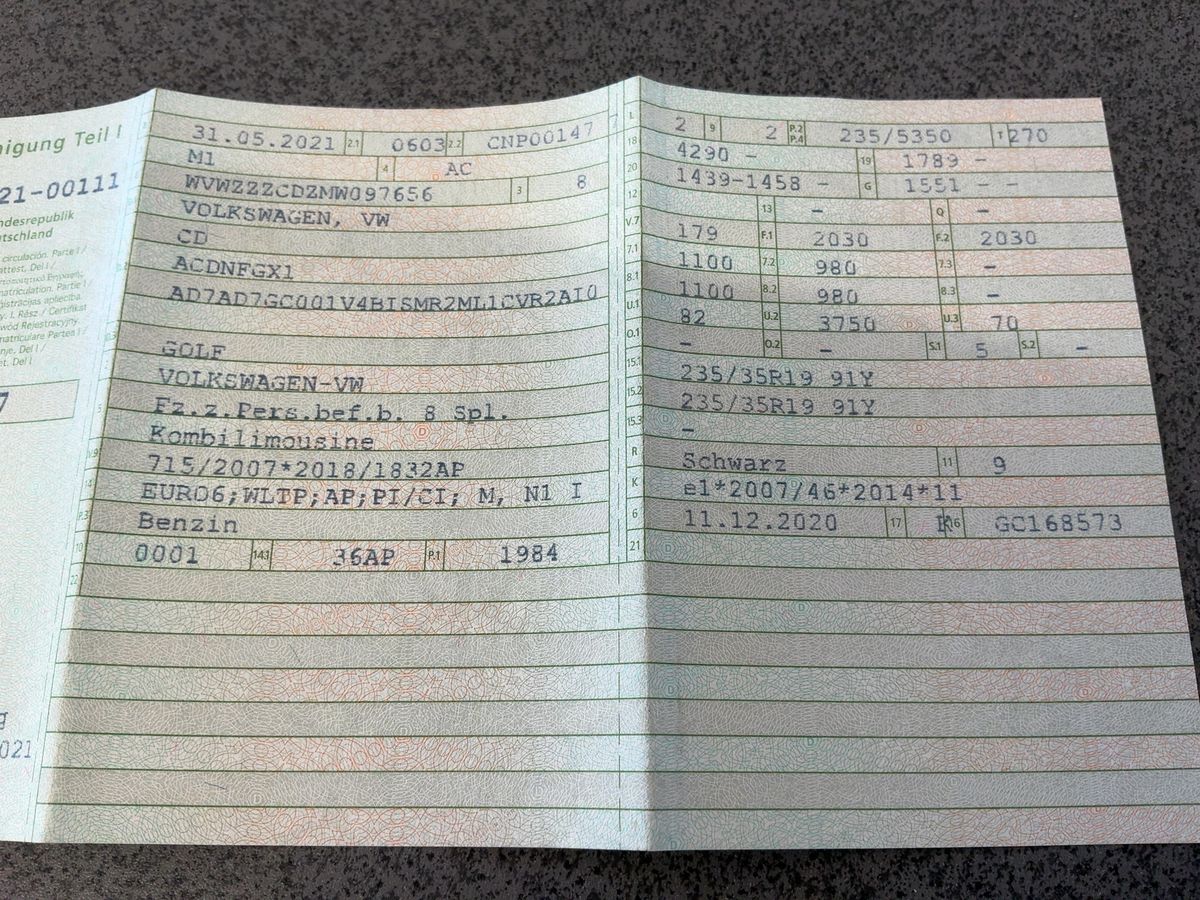 nigung Teil I
21-00111
ndesrepublik
utschland
circulación. Parte I /
attest, Del I /
matriculation. Parte I /
gistrācijas apliecība.
y. I. Rész / Certifikat
wód Rejestracyjny.
matriculare Partea I /
nje, Del I /
et. Del I
7
g
021
31.05.2021 2.1 0603 2.2 CNP00147 7
M1 4 AC
WVWZZZCDZMW097656 3 8
VOLKSWAGEN, VW
CD
ACDNFGX1
AD7AD7GC001V4BISMR2ML1CVR2AI0
GOLF
VOLKSWAGEN-VW
Fz.z.Pers.bef.b. 8 Spl.
Kombilimousine
V.9 715/2007*2018/1832AP
14 EURO6;WLTP;AP;PI/CI; M, N1 I
P.3 Benzin
10 0001 14.1 36AP P.1 1984
22
L 2 9 2 P.2 P.4 235/5350 T 270
18 4290 - 19 1789 -
20 1439-1458 - G 1551 - -
12 13 - Q -
V.7 179 F.1 2030 F.2 2030
7.1 1100 7.2 980 7.3 -
8.1 1100 8.2 980 8.3 -
U.1 82 U.2 3750 U.3 70
O.1 - O.2 - S.1 5 S.2 -
15.1 235/35R19 91Y
15.2 235/35R19 91Y
15.3 -
R Schwarz 11 9
K e1*2007/46*2014*11
6 11.12.2020 17 K 16 GC168573
21